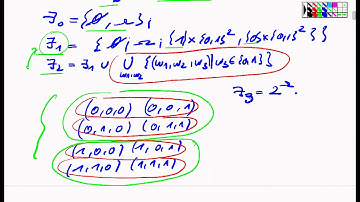 ℱ₀ = {∅, Ω};
ℱ₁ = {∅, Ω, {1}×{0,1}², {0}×{0,1}²}
ℱ₂ = ℱ₁ ∪ ⋃_{ω₁,ω₂} {(ω₁, ω₂, ω₃) | ω₃ ∈ {0,1}}
(0,0,0) (0,0,1)
(0,1,0) (0,1,1)
(1,0,0) (1,0,1)
(1,1,0) (1,1,1)